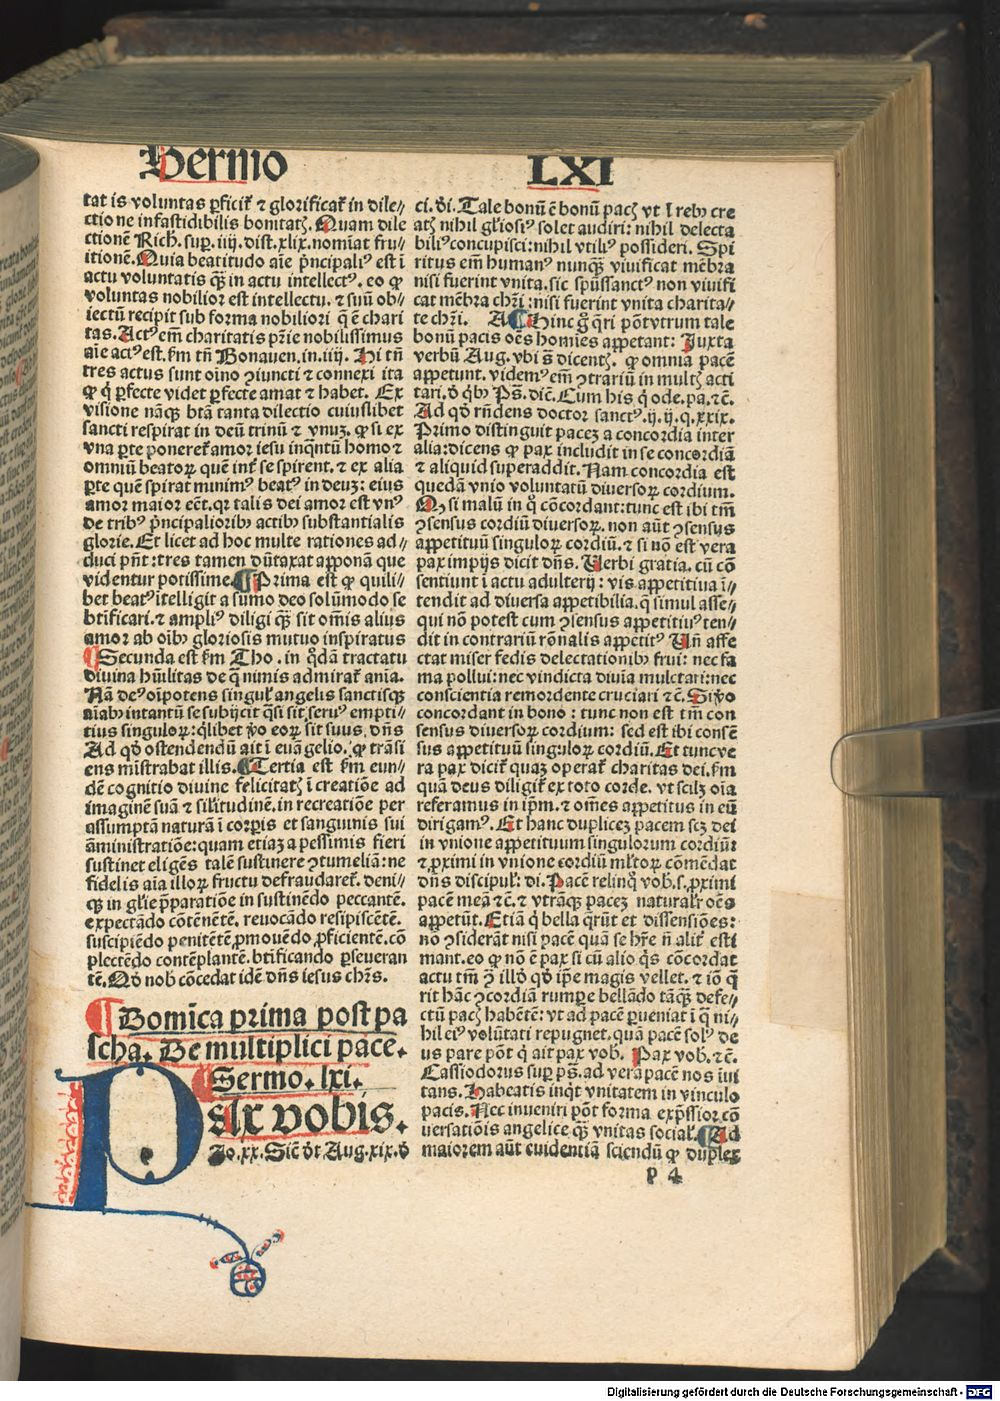 Sermo
LXI
tat is voluntas ꝑficit᷑ ⁊ glorificat᷑ in dile//
ctione infastidibilis bonitatꝭ. Quam dile
ctionē Rich. suꝑ. iiij. dist. xlix. nomīat fru//
itionē. Quia beatitudo aīe pͥncipaliꝰ est ī
actu voluntatis qꝫ̄ in actu intellectꝰ. eo ꝙ
voluntas nobilior est intellectu. ⁊ suū ob//
iectū recipit sub forma nobiliori q̄ ē chari
tas. Actꝰ em̄ charitatis pr̄ie nobilissimus
aīe actꝰ est. ẜm tn̄ Bonauen. in. iij. Hi tn̄
tres actus sunt oīno ꝯiuncti ⁊ connexi ita
ꝙ qͥ ꝑfecte videt ꝑfecte amat ⁊ habet. Ex
visione nāqꝫ btā tanta dilectio cuiuslibet
sancti respirat in deū trinū ⁊ vnuꝫ. ꝙ si ex
vna ꝑte poneret᷑ amor iesu inqͣntū homo ⁊
omniū beatoꝝ quē int᷑ se spirent. ⁊ ex alia
ꝑte quē spirat minimꝰ beatꝰ in deuꝫ: eius
amor maior eēt. qꝛ talis dei amor est vnꝰ
de tribꝰ pͥncipalioribꝰ actibꝰ substantialis
glorie. Et licet ad hoc multe rationes ad//
duci pn̄t: tres tamen dūtaxat apponā que
videntur potissime. Prima est ꝙ quili//
bet beatꝰ ītelligit a sūmo deo solūmodo se
btificari. ⁊ ampliꝰ diligi qꝫ̄ sit om̄is alius
amor ab oībꝰ gloriosis mutuo inspiratus
Secunda est ẜm Tho. in qͦdā tractatu
diuina hūilitas de q̄ nimis admirat᷑ aīa.
Nā deꝰ oīpotens singul᷑ angelis sanctisqꝫ
aīabꝰ intantū se subijcit qͣsi sit seruꝰ empti//
tius singuloꝝ: qͥlibet ꝟo eoꝝ sit suus dn̄s
Ad qd̄ ostendendū ait ī euāgelio. ꝙ trāsi
ens mīstrabat illis. Tertia est ẜm eun//
dē cognitio diuine felicitatꝭ ī creatiōe ad
imaginē suā ⁊ sil̄itudinē. in recreatiōe per
assumptā naturā ī corꝑis et sanguinis sui
āministratiōe: quam etiaꝫ a pessimis fieri
sustinet eligēs talē sustinere ꝯtumeliā: ne
fidelis aīa illoꝝ fructu defraudaret᷑. deni//
qꝫ in gl̄ie p̄paratiōe in sustinēdo peccantē.
expectādo cōtēnētē. reuocādo resipiscētē.
suscipiēdo penitētē ꝓmouēdo ꝓficientē. cō
plectēdo contēplantē. btificando ꝑseueran
tē. Qd̄ nob̄ cōcedat idē dn̄s iesus chr̄s.
Domīca prima post pa
scha. De multiplici pace.
Sermo. lxi.
PAx vobis.
Jo. xx. Sic̄ dt̄ Aug. xix. d̄
ci. di. Tale bonū ē bonū pacꝭ vt ī rebꝰ cre
atꝭ nihil gl̄iosiꝰ solet audiri: nihil delecta
biliꝰ concupisci: nihil vtiliꝰ possideri. Spi
ritus em̄ humanꝰ nunqꝫ̄ viuificat mēbra
nisi fuerint vnita. sic sp̄ussanctꝰ non viuifi
cat mēbra chr̄i: nisi fuerint vnita charita//
te chr̄i. A Hinc g̊ qͥri pōt vtrum tale
bonū pacis oēs homīes appetant: Juxta
verbū Aug. vbi s̄ dicentꝭ. ꝙ omnia pacē
appetunt. videmꝰ em̄ ꝯtrariū in multꝭ acti
tari. d̄ qͥbꝰ Ps. dic̄. Cum his qͥ ode. pa. ⁊c̄.
Ad qd̄ rn̄dens doctor sanctꝰ. ij. ij. q. xxix.
Primo distinguit paceꝫ a concordia inter
alia: dicens ꝙ pax includit in se concordiā
⁊ aliquid superaddit. Nam concordia est
quedā vnio voluntatū diuersoꝝ cordium.
Qꝫ si malū in qͦ cōcordant: tunc est ibi tm̄
ꝯsensus cordiū diuersoꝝ. non aūt ꝯsensus
appetituū singuloꝝ cordiū. ⁊ si nō est vera
pax impijs dicit dn̄s. Verbi gratia. cū cō
sentiunt ī actu adulterij: vis appetitiua ī//
tendit ad diuersa appetibilia. q̄ simul asse//
qui nō potest cum ꝯsensus appetitiuꝰ ten//
dit in contrariū rōnalis appetitꝰ Un̄ affe
ctat miser fedis delectationibꝰ frui: nec fa
ma pollui: nec vindicta diuīa mulctari: nec
conscientia remordente cruciari ⁊c̄. Si ꝟo
concordant in bono: tunc non est tm̄ con
sensus diuersoꝝ cordium: sed est ibi consē
sus appetituū singuloꝝ cordiū. Et tunc ve
ra pax dicit᷑ quaꝫ operat᷑ charitas dei. ẜm
quā deus diligit᷑ ex toto corde. vt scilꝫ oīa
referamus in ip̄m. ⁊ om̄es appetitus in eū
dirigamꝰ. Et hanc dupliceꝫ pacem scꝫ dei
in vnione appetituum singulorum cordiū:
⁊ ꝓximi in vnione cordiū ml̄toꝝ cōmēdat
dn̄s discipul᷑: di. Pacē relinqͦ vob̄. s. ꝓximi
pacē meā ⁊c̄. ⁊ vtrāqꝫ paceꝫ natural᷑r oēs
appetūt. Etiā qͥ bella qͣrūt et dissensiōes:
nō ꝯsiderāt nisi pacē quā se hr̄e n̄ alit᷑ esti
mant. eo ꝙ nō ē pax si cū alio qͥs cōcordat
actu tm̄ ꝯͣ illd̄ qd̄ ip̄e magis vellet. ⁊ iō q̄
rit hāc ꝯcordiā rumꝑe bellādo tāqꝫ̄ defe//
ctū pacꝭ habētē: vt ad pacē ꝑueniat ī q̄ ni//
hil eiꝰ volūtati repugnet. quā pacē solꝰ de
us pare pōt qͥ ait pax vob̄. Pax vob̄. ⁊c̄.
Cassiodorus suꝑ ps. ad verā pacē nos īui
tans. Habeatis inqͥt vnitatem in vinculo
pacis. Nec inueniri pōt forma exp̄ssior cō
uersatiōis angelice qꝫ̄ vnitas social᷑. Ad
maiorem aūt euidentiā sciendū ꝙ duplex
p 4
Digitalisierung gefördert durch die Deutsche Forschungsgemeinschaft - DFG